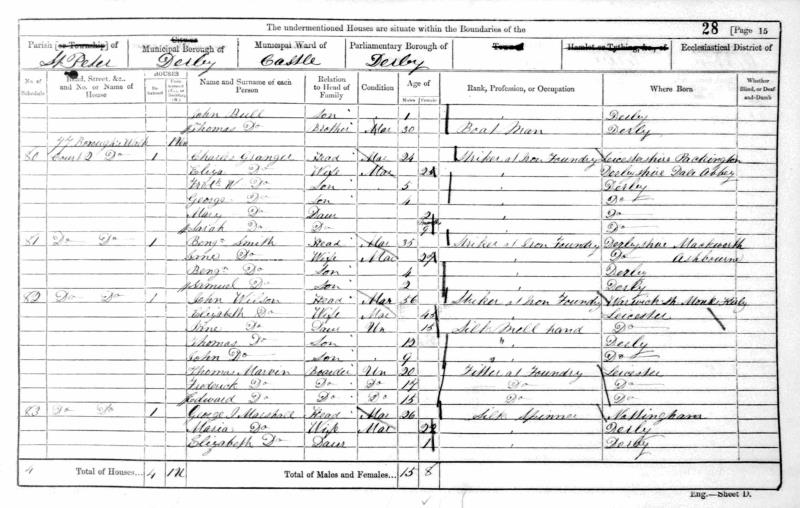 The undermentioned Houses are situate within the Boundaries of the 28 [Page 15
Parish [or Township] of St Peter City or Municipal Borough of Derby Municipal Ward of Castle Parliamentary Borough of Derby Town of Hamlet or Tything, &c., of Ecclesiastical District of
No. of Schedule Road, Street, &c., and No. or Name of House HOUSES Name and Surname of each Person Relation to Head of Family Condition Age of Males Females Rank, Profession, or Occupation Where Born Whether Blind, or Deaf-and-Dumb
John Bull Son 1 Derby
Thomas Do Brother Mar 30 Boat Man Derby
77 Borough Walk 1
80 Court 2 Do 1 Charles Granger Head Mar 24 Striker at Iron Foundry Leicestershire Packington
Eliza Do Wife Mar Derbyshire Dale Abbey
W. Do Son 5 Derby
George Do Son 4 Do
Mary Do Daur 2 Do
Sarah Do Do Do
81 Do Do 1 Benjn Smith Head Mar 35 Striker at Iron Foundry Derbyshire Mackworth
Jane Do Wife Mar 29 Do Ashbourne
Benjn Do Son 4 Derby
Samuel Do Son 2 Derby
82 Do Do 1 John Wilson Head Mar 56 Striker at Iron Foundry Warwick sh. Monks Kirby
Elizabeth Do Wife Mar 45 Leicester
Jane Do Daur Un 15 Silk Mill hand Do
Thomas Do Son 12 " Derby
John Do Son 9 " Do
Thomas Marvin Boarder Un 20 Fitter at Foundry Leicester
Frederick Do Do Do 17 Do Do
Edward Do Do Do 15 Do Do
83 Do Do 1 George J Marshall Head Mar 26 Silk Spinner Nottingham
Maria Do Wife Mar 22 Derby
Elizabeth Do Daur 1 Derby
4 Total of Houses... 4 Total of Males and Females... 15 8
Eng.—Sheet D.